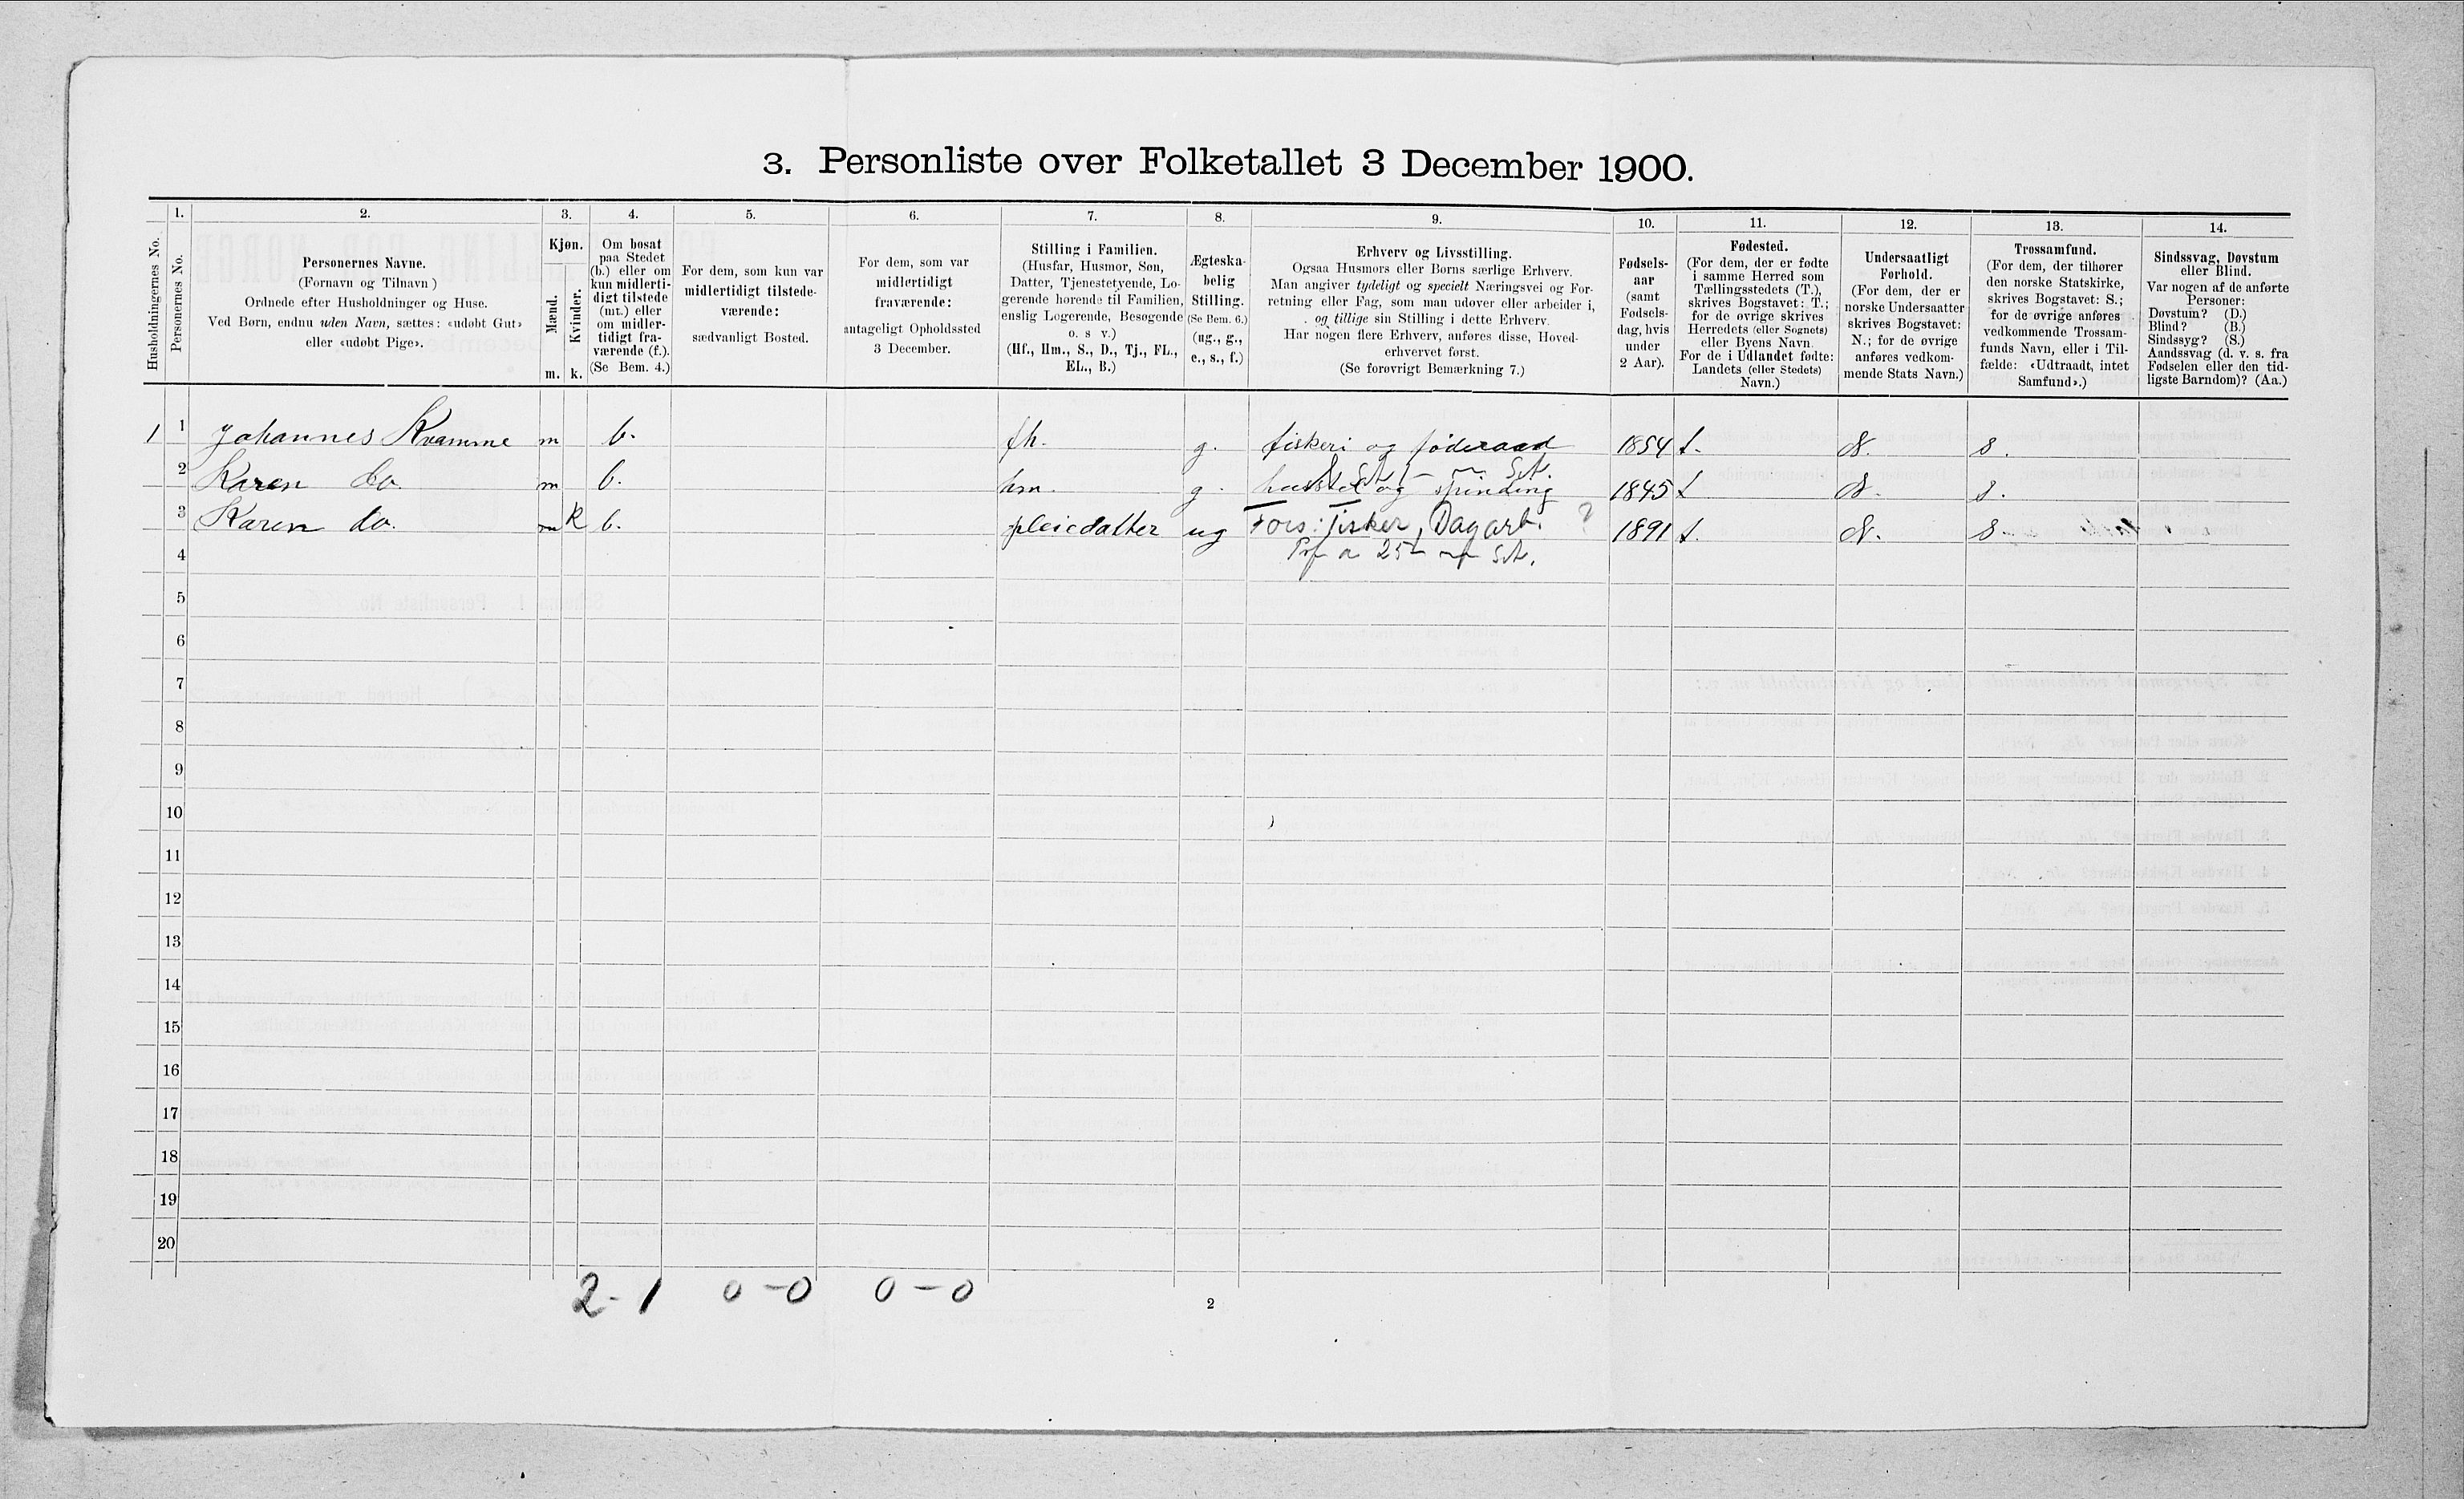 3. Personliste over Folketallet 3 December 1900.
1. 2. 3. 4. 5. 6. 7. 8. 9. 10. 11. 12. 13. 14.
Husholdningernes No.
Personernes No.
Personernes Navne.
(Fornavn og Tilnavn)
Ordnede efter Husholdninger og Huse.
Ved Børn, endnu uden Navn, sættes: «udøbt Gut»
eller «udøbt Pige».
Kjøn.
Mænd.
Kvinder.
m. k.
Om bosat
paa Stedet
(b.) eller om
kun midlerti-
digt tilstede
(mt.) eller
om midler-
tidigt fra-
værende (f.).
(Se Bem. 4.)
For dem, som kun var
midlertidigt tilstede-
værende:
sædvanligt Bosted.
For dem, som var
midlertidigt
fraværende:
antageligt Opholdssted
3 December.
Stilling i Familien.
(Husfar, Husmor, Søn,
Datter, Tjenestetyende, Lo-
gerende hørende til Familien,
enslig Logerende, Besøgende
o. s v.)
(Hf., Hm., S., D., Tj., FL.,
EL., B.)
Ægteska-
belig
Stilling.
(Se Bem. 6.)
(ug., g.,
e., s., f.)
Erhverv og Livsstilling.
Ogsaa Husmors eller Børns særlige Erhverv.
Man angiver tydeligt og specielt Næringsvei og For-
retning eller Fag, som man udøver eller arbeider i,
og tillige sin Stilling i dette Erhverv.
Har nogen flere Erhverv, anføres disse, Hoved-
erhvervet først.
(Se forøvrigt Bemærkning 7.)
Fødsels-
aar
(samt
Fødsels-
dag, hvis
under
2 Aar).
Fødested.
(For dem, der er fødte
i samme Herred som
Tællingsstedets (T.),
skrives Bogstavet: T.;
for de øvrige skrives
Herredets (eller Sognets)
eller Byens Navn.
For de i Udlandet fødte:
Landets (eller Stedets)
Navn.)
Undersaatligt
Forhold.
(For dem, der er
norske Undersaatter
skrives Bogstavet:
N.; for de øvrige
anføres vedkom-
mende Stats Navn.)
Trossamfund.
(For dem, der tilhører
den norske Statskirke,
skrives Bogstavet: S.;
for de øvrige anføres
vedkommende Trossam-
funds Navn, eller i Til-
fælde: «Udtraadt, intet
Samfund».)
Sindssvag, Døvstum
eller Blind.
Var nogen af de anførte
Personer:
Døvstum? (D.)
Blind? (B.)
Sindssyg? (S.)
Aandssvag (d. v. s. fra
Fødselen eller den tid-
ligste Barndom)? (Aa.)
1 1 Johannes Kvamme m b. fh. g. fiskeri og føderaad 1854 t. N. s.
2 Karen do. m b. hm. g. husstel og spinding 1845 t N. s.
3 Karen do. m k b. pleiedatter ug Fors: Fisker, Dagarb. ? 1891 t. N. s.
4
5
6
7
8
9
10
11
12
13
14
15
16
17
18
19
20
2-1 0-0 0-0
2